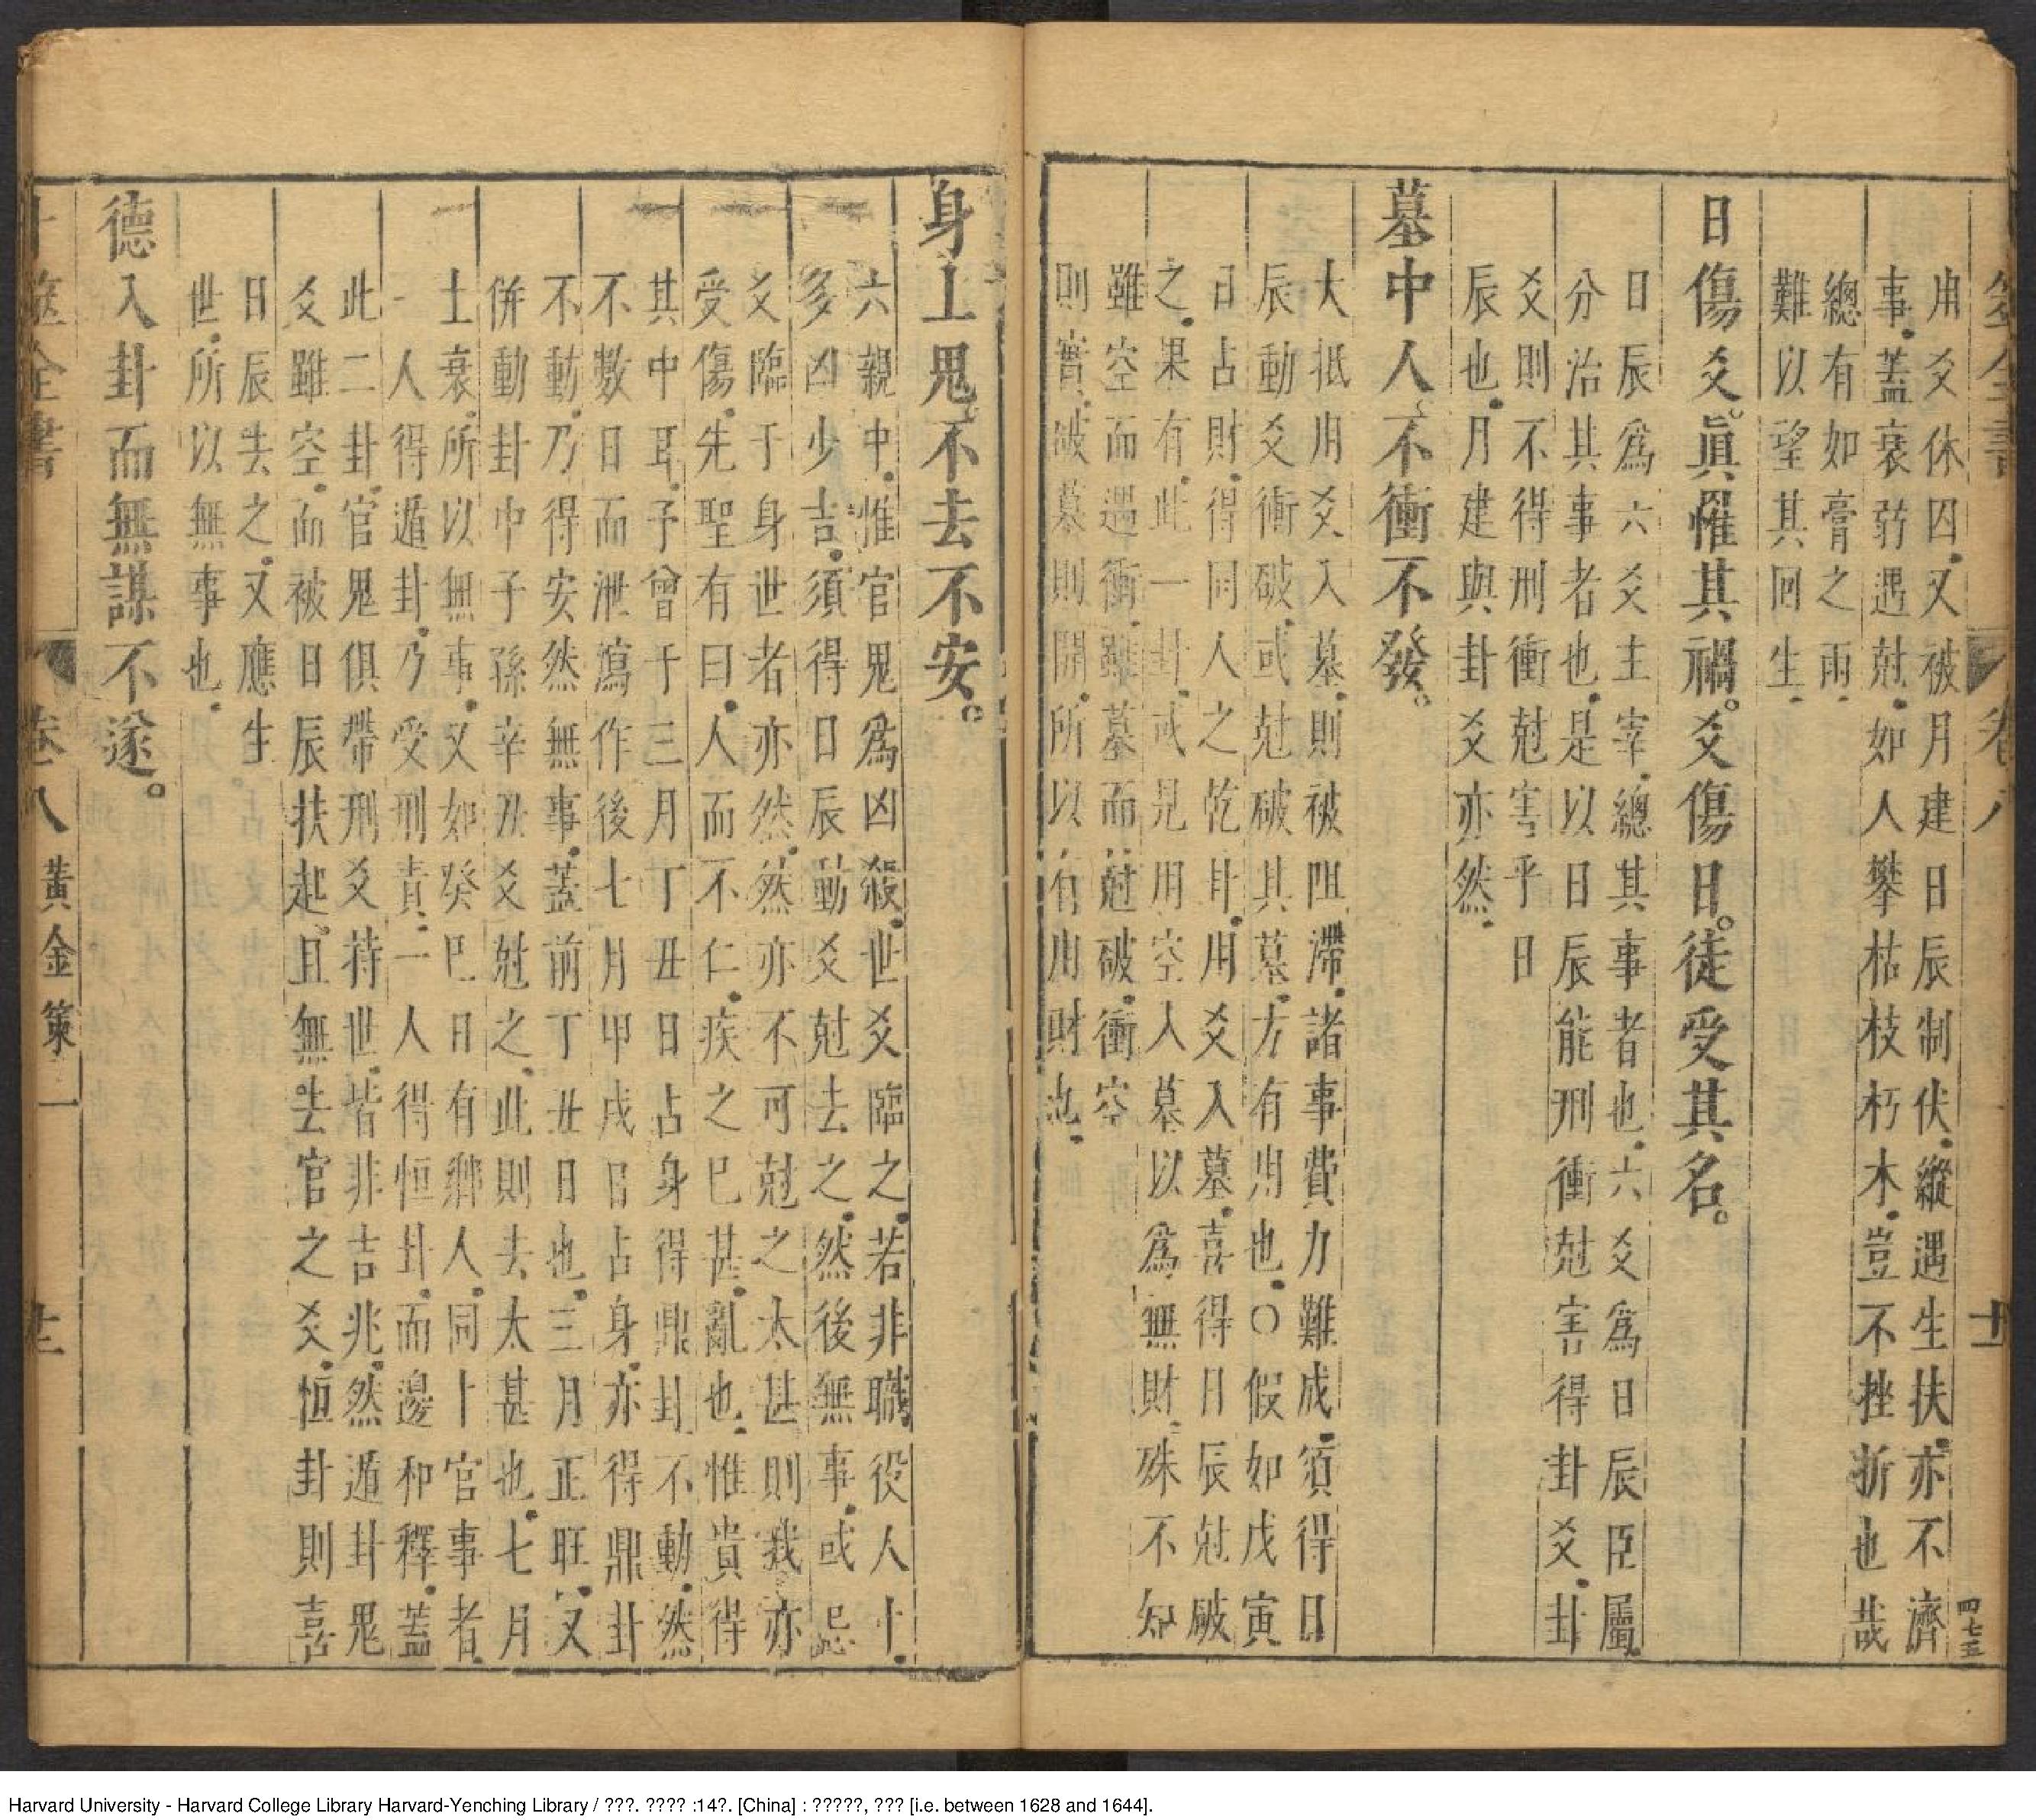 筮全書
卷八
十一
四七三
用爻休囚又被月建日辰制伏縱遇生扶亦不濟
事蓋衰弱遇尅如人攀枯枝朽木豈不挫折也哉
總有如膏之雨
難以望其回生
日傷爻眞罹其禍爻傷日徒受其名
日辰爲六爻主宰總其事者也六爻爲日辰臣屬
分治其事者也是以日辰能刑衝尅害得卦爻卦
爻則不得刑衝尅害乎日
辰也月建與卦爻亦然
墓中人不衝不發
大抵用爻入墓則被阻滯諸事費力難成須得日
辰動爻衝破或尅破其墓方有用也○假如戊寅
日占財得同人之乾卦用爻入墓喜得日辰尅破
之果有此一卦或見用空入墓以爲無財殊不知
雖空而遇衝雖墓而尅破衝空
則實破墓則開所以有用財也
身上鬼不去不安
六親中惟官鬼爲凶殺世爻臨之若非職役人卜
多凶少吉須得日辰動爻尅去之然後無事或忌
爻臨于身世者亦然然亦不可尅之太甚則我亦
受傷先聖有曰人而不仁疾之已甚亂也惟貴得
其中耳予曾于三月丁丑日占身得鼎卦不動然
不數日而泄瀉作後七月甲戌日占身亦得鼎卦
不動乃得安然無事蓋前丁丑日也三月正旺又
併動卦中子孫辛丑爻尅之此則去太甚也七月
土衰所以無事又如癸巳日有鄉人同卜官事者
一人得遁卦乃受刑責一人得恒卦而邊和釋蓋
此二卦官鬼俱帶刑爻持世皆非吉兆然遁卦鬼
爻雖空而被日辰扶起且無去官之爻恒卦則喜
日辰去之又應生
世所以無事也
德入卦而無謀不遂
卜筮全書
卷八
黃金策一
十二
Harvard University - Harvard College Library Harvard-Yenching Library / ???. ???? :14?. [China] : ?????, ??? [i.e. between 1628 and 1644].